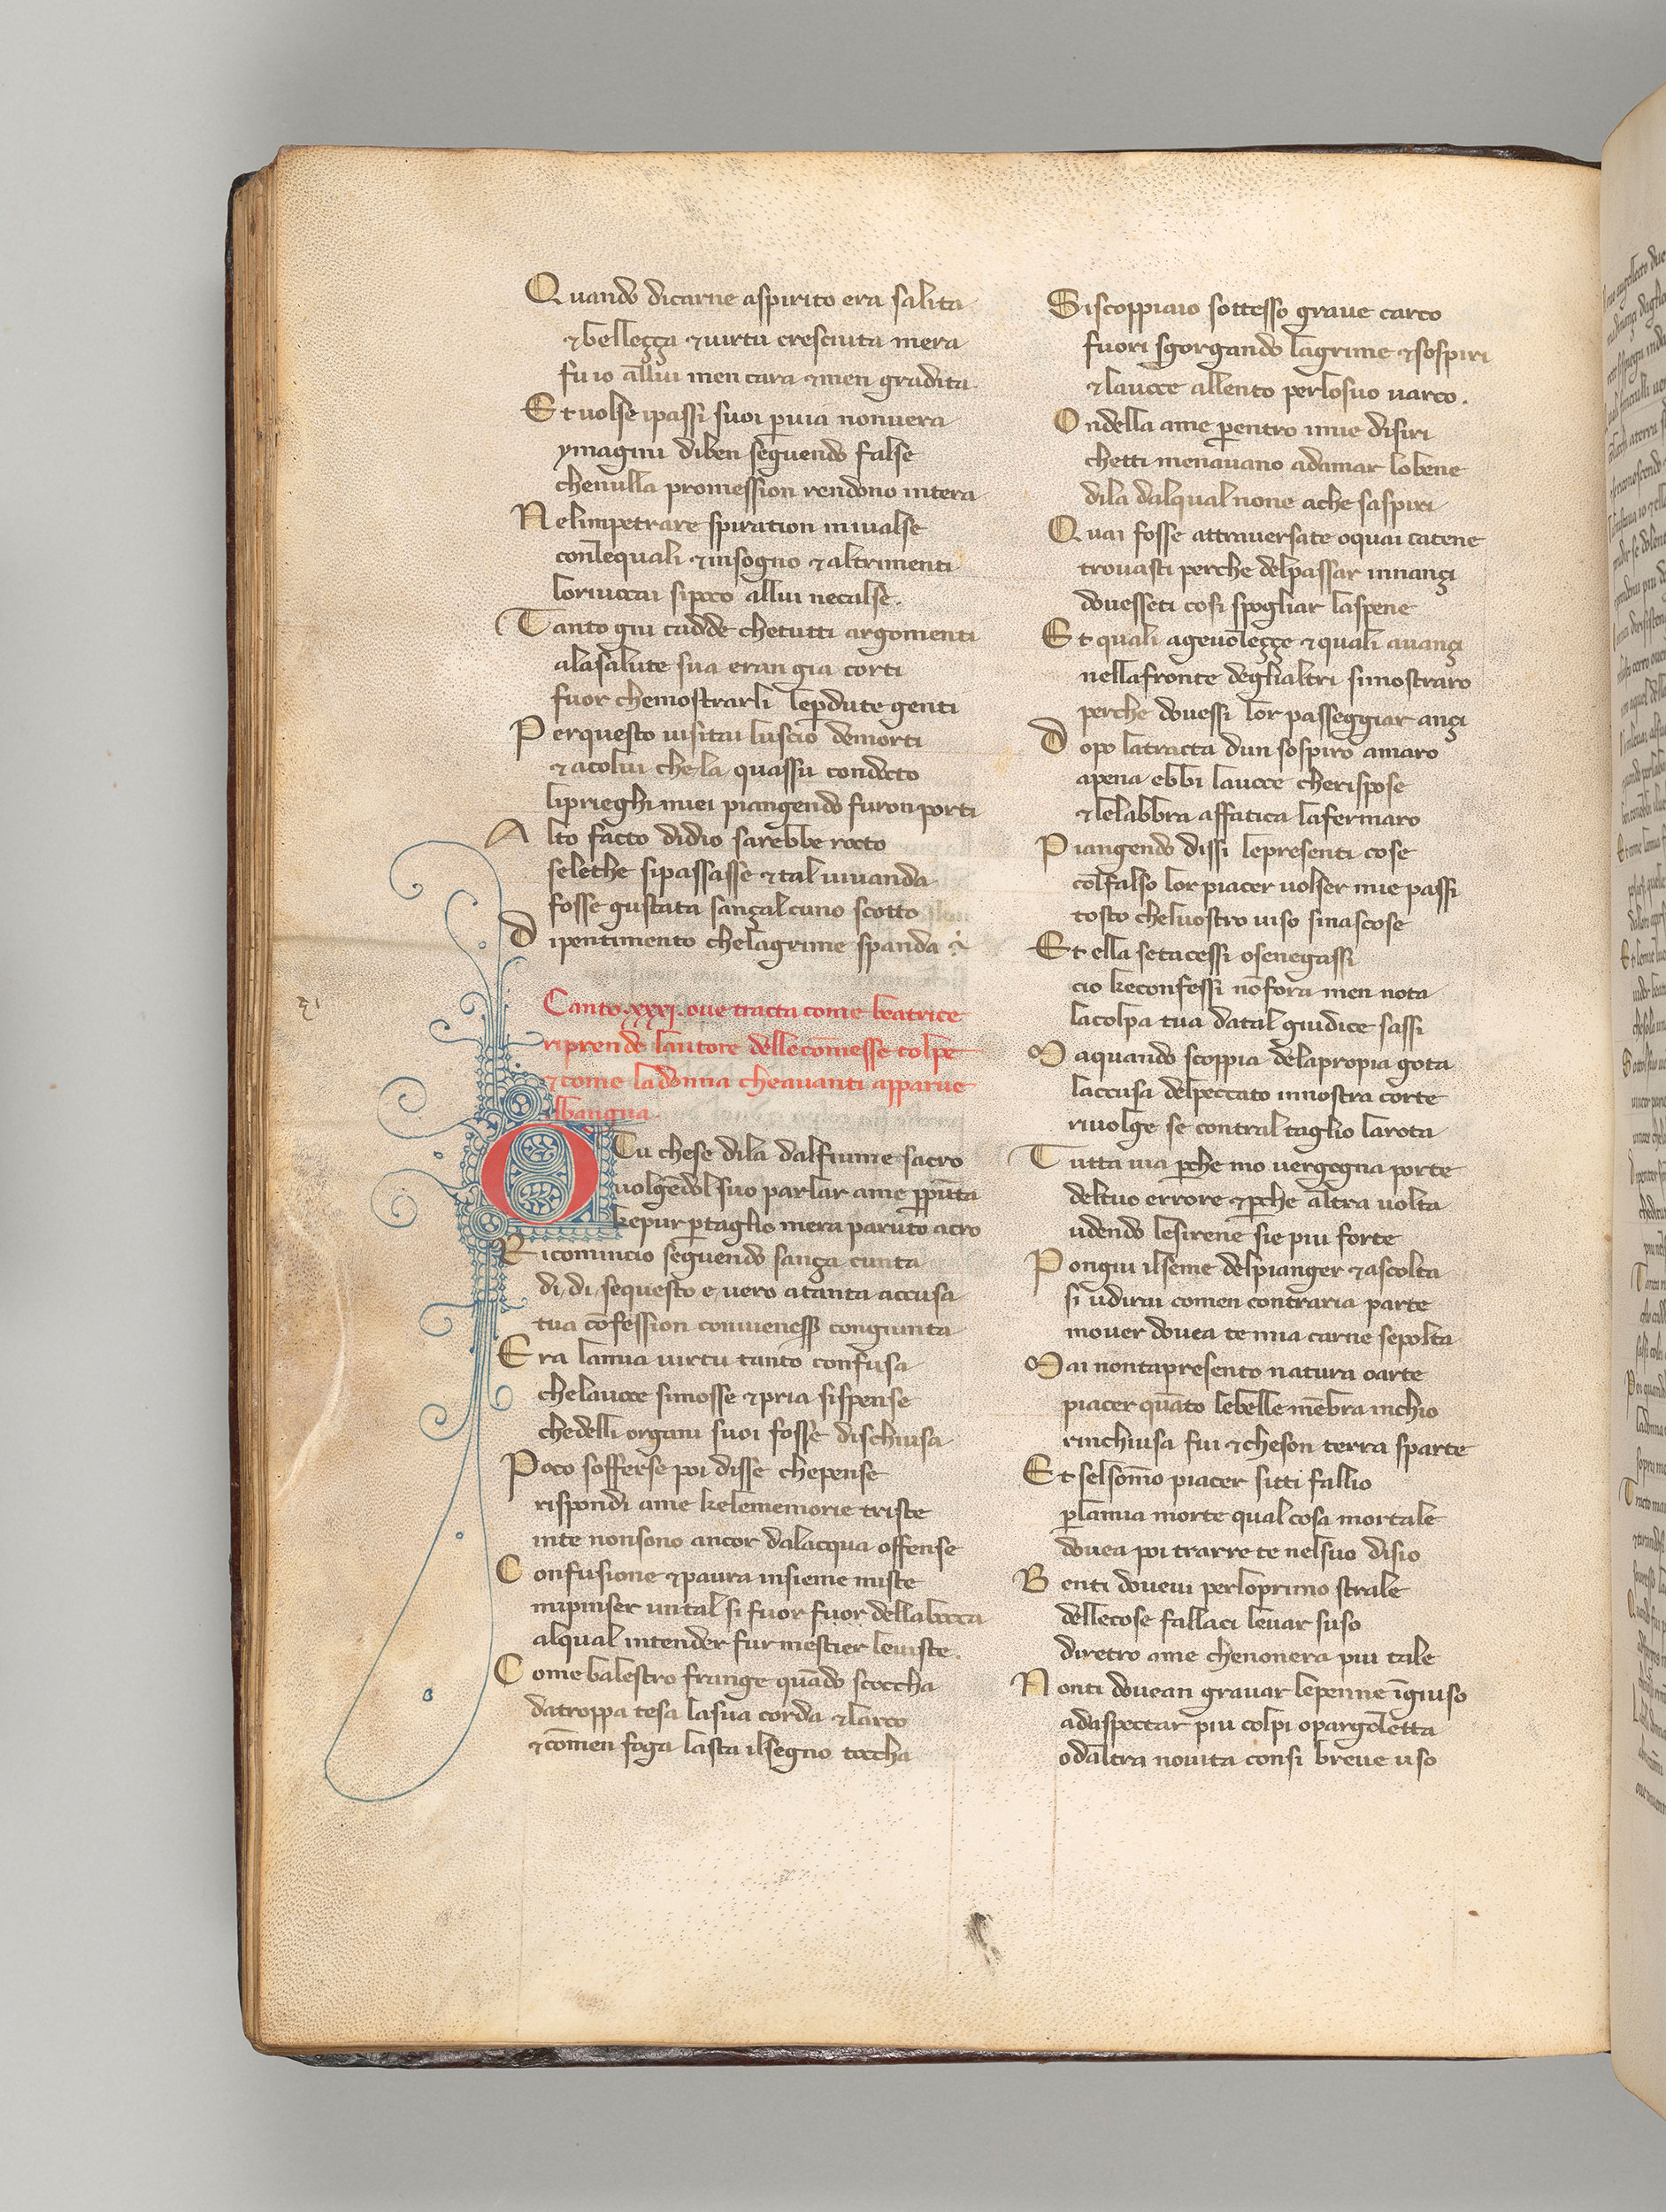 Quando dicarne aspirito era salita
⁊bellezza ⁊uirtu cresciuta mera
fu io allui men cara ⁊men gradita
Et uolse ipassi suoi ꝑuia nonuera
ymagini diben seguendo false
chenulla promession rendono intera
Nelimpetrare spiration miualse
conlequali ⁊insogno ⁊altrimenti
loriuocai sipoco allui necalse.
Tanto giu cadde chetutti argomenti
alasalute sua eran gia corti
fuor chemostrarli leꝑdute genti
Perquesto uisitai luscio demorti
⁊acolui chela quassu condocto
liprieghi miei piangendo furon porti
Alto facto didio sarebbe rocto
selethe sipassasse ⁊tal uiuanda
fosse gustata sanzalcuno scotto
Dipentimento chelagrime spanda
Canto .xxxj. oue tracta come beatrice
riprende lautore dellecōmesse colpe
⁊come ladonna cheauanti apparue
lbangna.
O Tu chese dila dalfiume sacro
uolgēdol suo parlar ame ꝑpūta
kepur ꝑtaglio mera paruto acro
Ricomincio seguendo sanza cunta
di, di, sequesto e uero atanta accusa
tua cōfession conuienesser congiunta
Era lamia uirtu tanto confusa
chelauoce simosse ⁊pria sispense
chedelli organi suoi fosse dischiusa
Poco sofferse poi disse chepense
rispondi ame kelememorie triste
inte nonsono ancor dalacqua offense
Confusione ⁊paura insieme miste
mipinser untal si fuor fuor dellabocca
alqual intender fur mestier leuiste.
Come balestro frange quādo scoccha
datroppa tesa lasua corda ⁊larco
⁊cōmen foga lasta ilsegno toccha
Siscoppiaio sottesso graue carco
fuori sgorgando lagrime ⁊sospiri
⁊lauoce allento perlosuo uarco.
Ondella ame ꝑentro imie disiri
chetti menauano adamar lobene
dila dalqual none ache saspiri
Quai fosse attrauersate oquai catene
trouasti perche delpassar innanzi
douesseti cosi spogliar laspene
Et quali ageuolezze ⁊quali auanzi
nellafronte deglialtri simostraro
perche douessi lor passeggiar anzi
Dopo latracta dun sospiro amaro
apena ebbi lauoce cherispose
⁊lelabbra affatica lafermaro
Piangendo dissi lepresenti cose
colfalso lor piacer uolser mie passi
tosto cheluostro uiso sinascose
Et ella setacessi osenegassi
cio keconfessi nōfora men nota
lacolpa tua datal giudice sassi
Maquando scoppia delapropia gota
laccusa delpeccato innostra corte
riuolge se contral taglio larota
Tutta uia ꝑche mo uergogna porte
deltuo errore ⁊ꝑche altra uolta
udendo lesirene sie piu forte
Pongiu ilseme delpianger ⁊ascolta
si udirai comen contraria parte
mouer douea te mia carne sepolta
Mai nontapresento natura oarte
piacer quāto lebelle mēbra inchio
rinchiusa fui ⁊cheson terra sparte
Et selsōmo piacer sitti fallio
ꝑlamia morte qual cosa mortale
douea poi trarre te nelsuo disio
Benti doueui perloprimo strale
dellecose fallaci leuar suso
diretro ame chenonera piu tale
Nonti douean grauar lepenne īgiuso
adaspectar piu colpi opargoletta
odaltra nouita consi breue uso